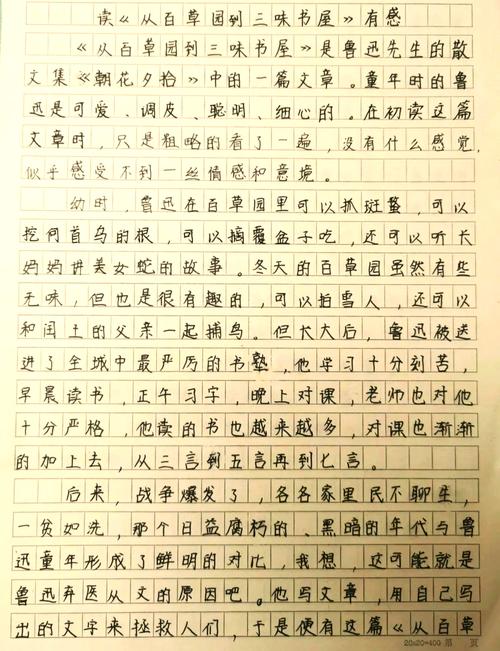 读《从百草园到三味书屋》有感
《从百草园到三味书屋》是鲁迅先生的散
文集《朝花夕拾》中的一篇文章。童年时的鲁
迅是可爱、调皮、聪明、细心的。在初读这篇
文章时，只是粗略的看了一遍，没有什么感觉，
似乎感受不到一丝情感和意境。
幼时，鲁迅在百草园里可以抓斑蝥，可以
挖何首乌的根，可以摘覆盆子吃，还可以听长
妈妈讲美女蛇的故事。冬天的百草园虽然有些
无味，但也是很有趣的，可以拍雪人，还可以
和闰土的父亲一起捕鸟。但长大后，鲁迅被送
进了全城中最严厉的书塾，他学习十分刻苦，
早晨读书，正午习字，晚上对课，老师也对他
十分严格，他读的书也越来越多，对课也渐渐
的加上去，从三言到五言再到七言。
后来，战争爆发了，各各家里民不聊生，
一贫如洗，那个日益腐朽的、黑暗的年代与鲁
迅童年形成了鲜明的对比，我想，这可能就是
鲁迅弃医从文的原因吧。他写文章，用自己写
出的文字来拯救人们，于是便有这篇《从百草
20×20=400 第 页